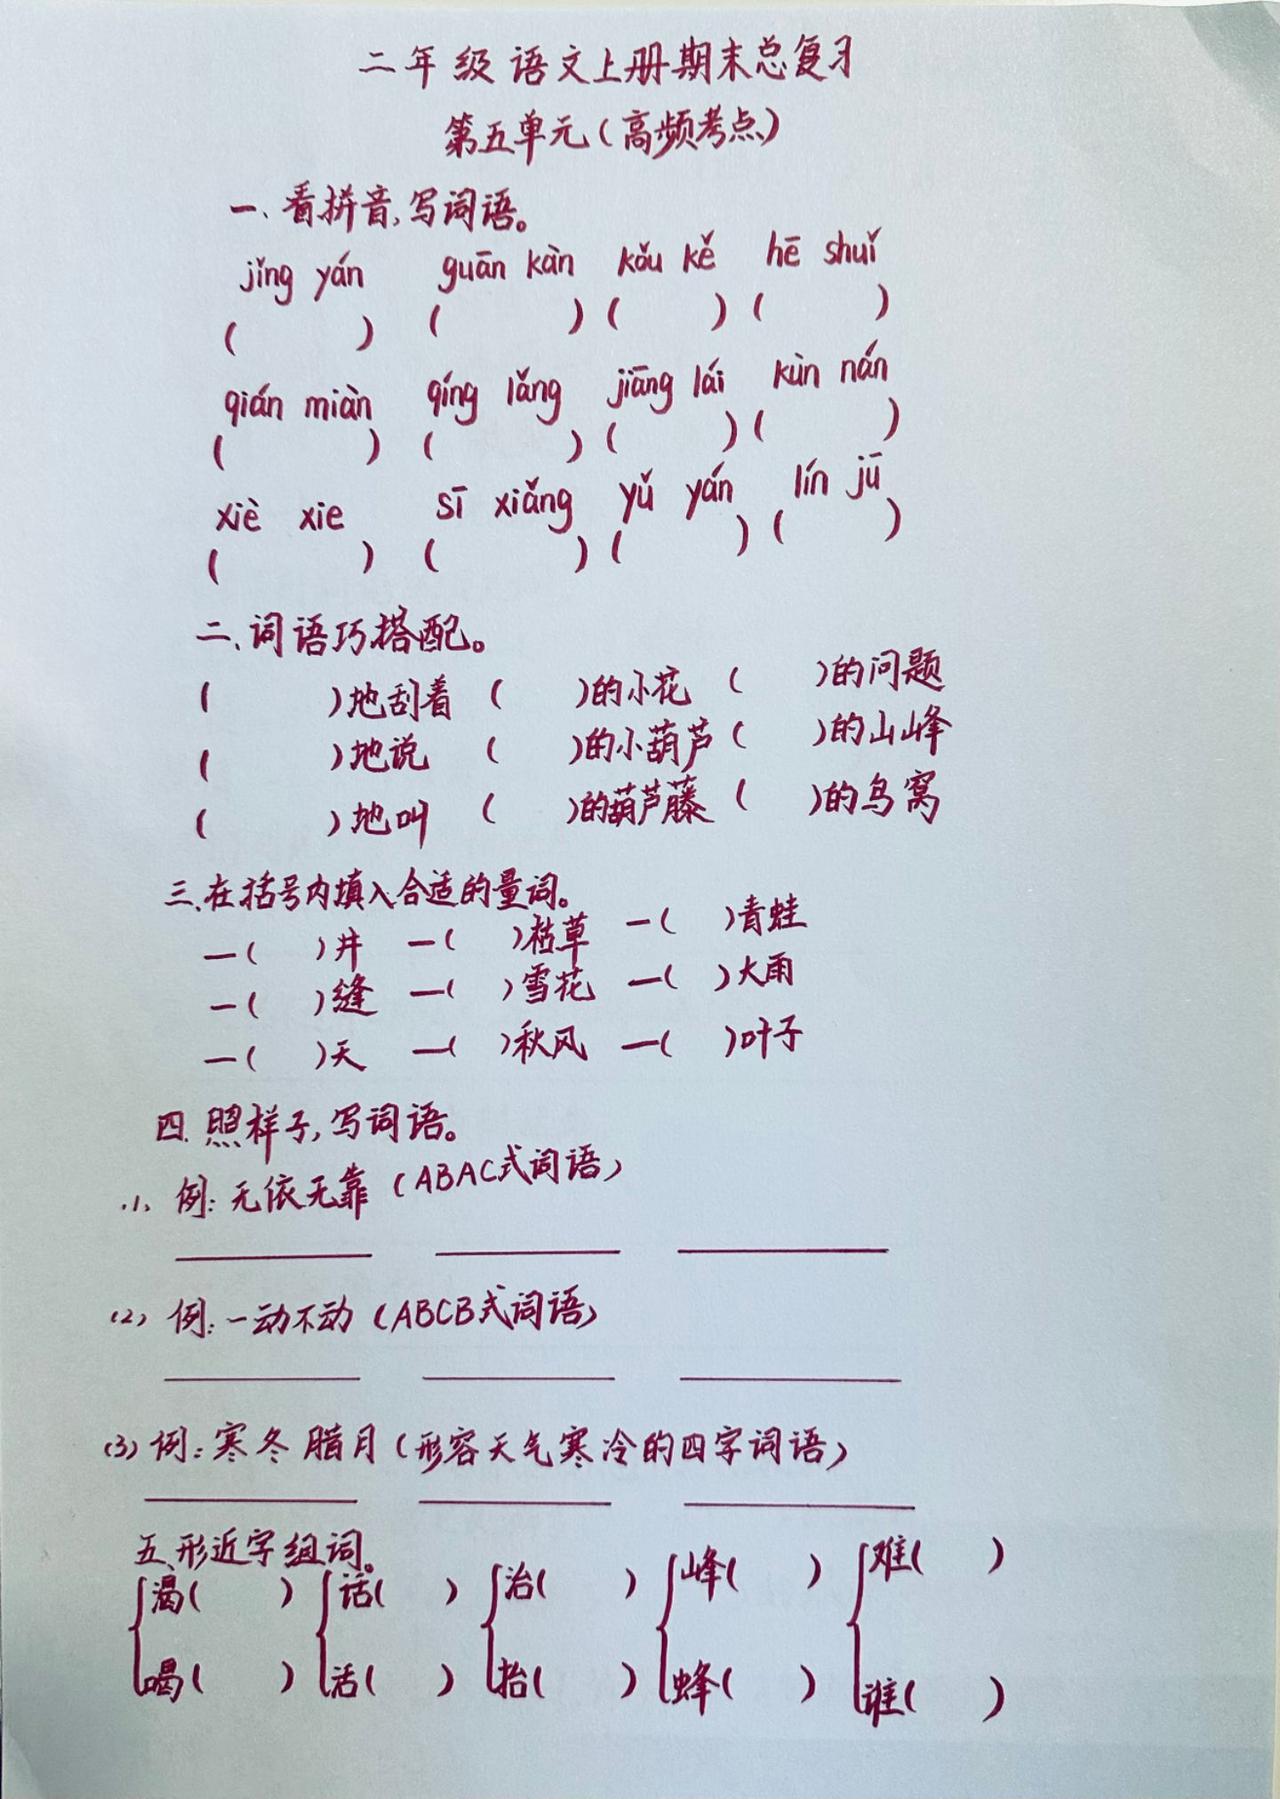 二年级语文上册期末总复习
第五单元(高频考点)
一、看拼音,写词语。
jǐng yán guān kàn kǒu kě hē shuǐ
( ) ( ) ( ) ( )
qián miàn qíng lǎng jiāng lái kùn nán
( ) ( ) ( ) ( )
xiè xie sī xiǎng yǔ yán lín jū
( ) ( ) ( ) ( )
二、词语巧搭配。
( )地刮着 ( )的小花 ( )的问题
( )地说 ( )的小葫芦 ( )的山峰
( )地叫 ( )的葫芦藤 ( )的鸟窝
三、在括号内填入合适的量词。
一( )井 一( )枯草 一( )青蛙
一( )缝 一( )雪花 一( )大雨
一( )天 一( )秋风 一( )叶子
四、照样子,写词语。
(1) 例:无依无靠(ABAC式词语)
(2) 例:一动不动(ABCB式词语)
(3) 例:寒冬腊月(形容天气寒冷的四字词语)
五、形近字组词。
渴( ) 话( ) 治( ) 峰( ) 难( )
喝( ) 活( ) 抬( ) 蜂( ) 谁( )